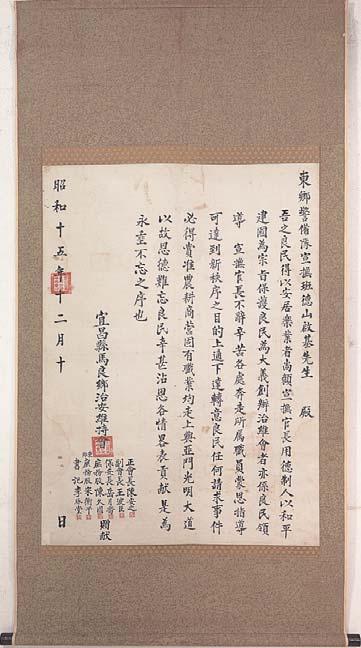 東鄉警備隊宣撫班德山啟基先生 殿
吾之良民得以安居樂業者尚賴宣撫官長用德制人以和平
建國為宗旨保護良民為大義創辦治維會者亦保良民領
導 宣撫官長不辭辛苦各處奔走所屬職員蒙恩指導
可達到新秩序之目的上通下達轉意良民任何請求事件
必得賞准農耕商營因有職業均走上興亞門光明大道
以故恩德難忘良民幸甚沾恩各情畧表貢獻是為
永垂不忘之序也
宜昌縣馬良鄉治安維持會
正會長陳安之
副會長王
保安長
股長陳
股長宋衡平
書記李
贈獻
昭和十五年十二月十 日